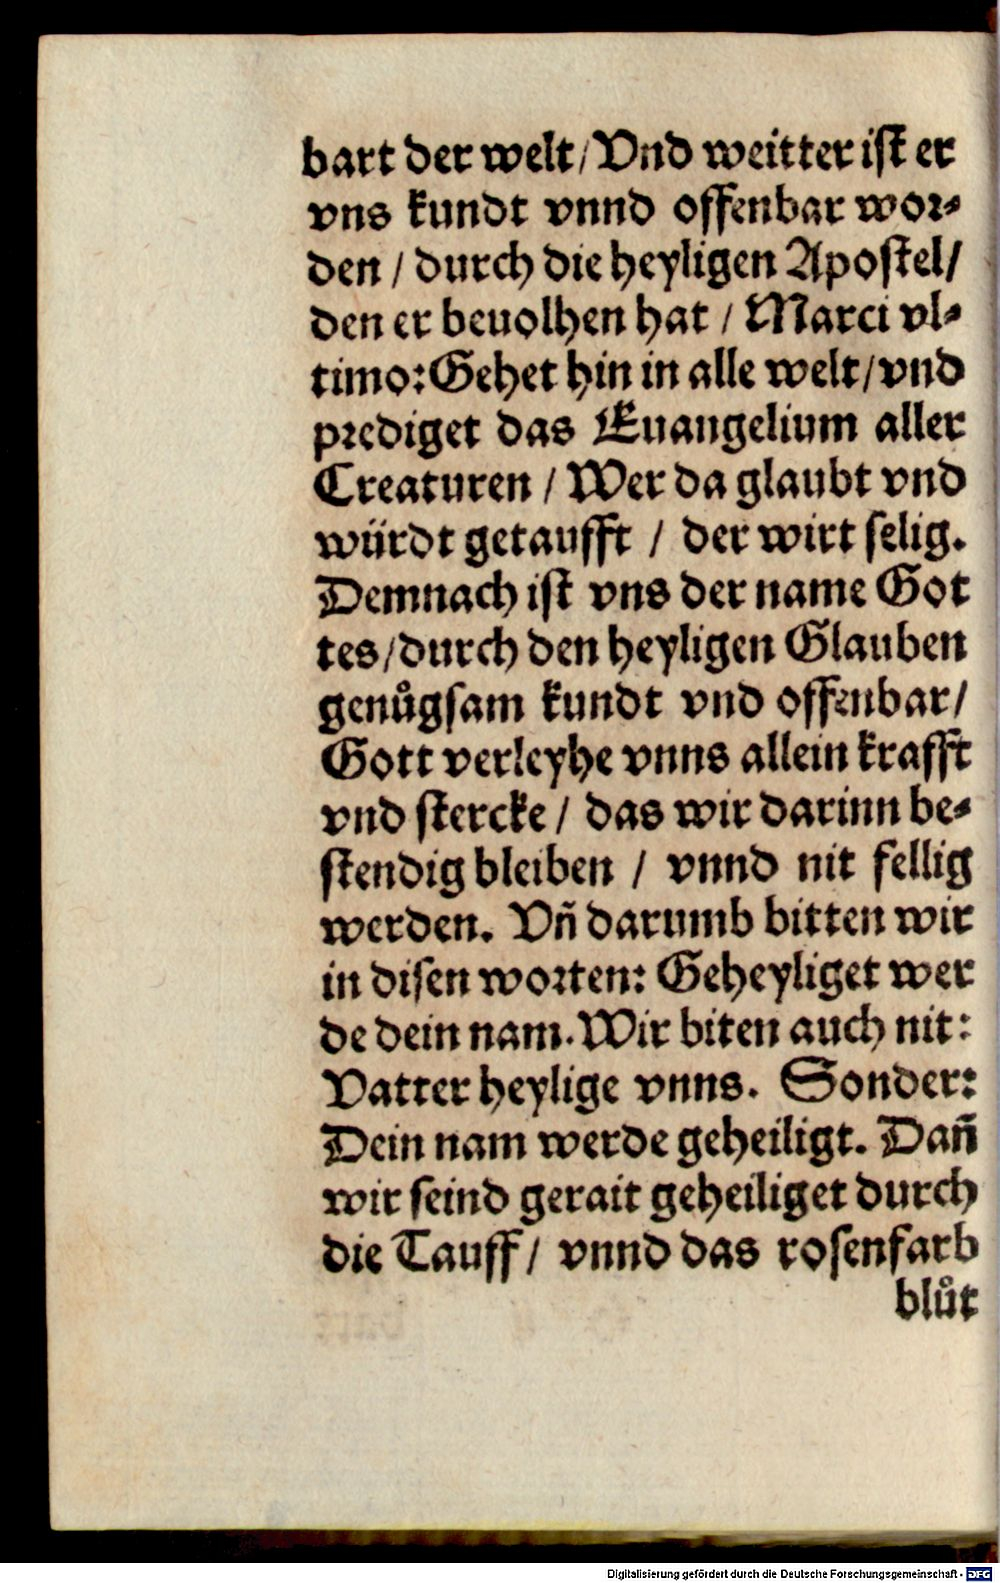 bart der welt/ Vnd weitter ist er
vns kundt vnnd offenbar wor⸗
den / durch die heyligen Apostel/
den er beuolhen hat / Marci vl⸗
timo: Gehet hin in alle welt/ vnd
prediget das Euangelium aller
Creaturen / Wer da glaubt vnd
würdt getaufft / der wirt selig.
Demnach ist vns der name Got
tes/ durch den heyligen Glauben
genůgsam kundt vnd offenbar/
Gott verleyhe vnns allein krafft
vnd stercke / das wir darinn be⸗
stendig bleiben / vnnd nit fellig
werden. Vñ darumb bitten wir
in disen worten: Geheyliget wer
de dein nam. Wir biten auch nit:
Vatter heylige vnns. Sonder:
Dein nam werde geheiligt. Dañ
wir seind gerait geheiliget durch
die Tauff/ vnnd das rosenfarb
blůt
Digitalisierung gefördert durch die Deutsche Forschungsgemeinschaft - DFG